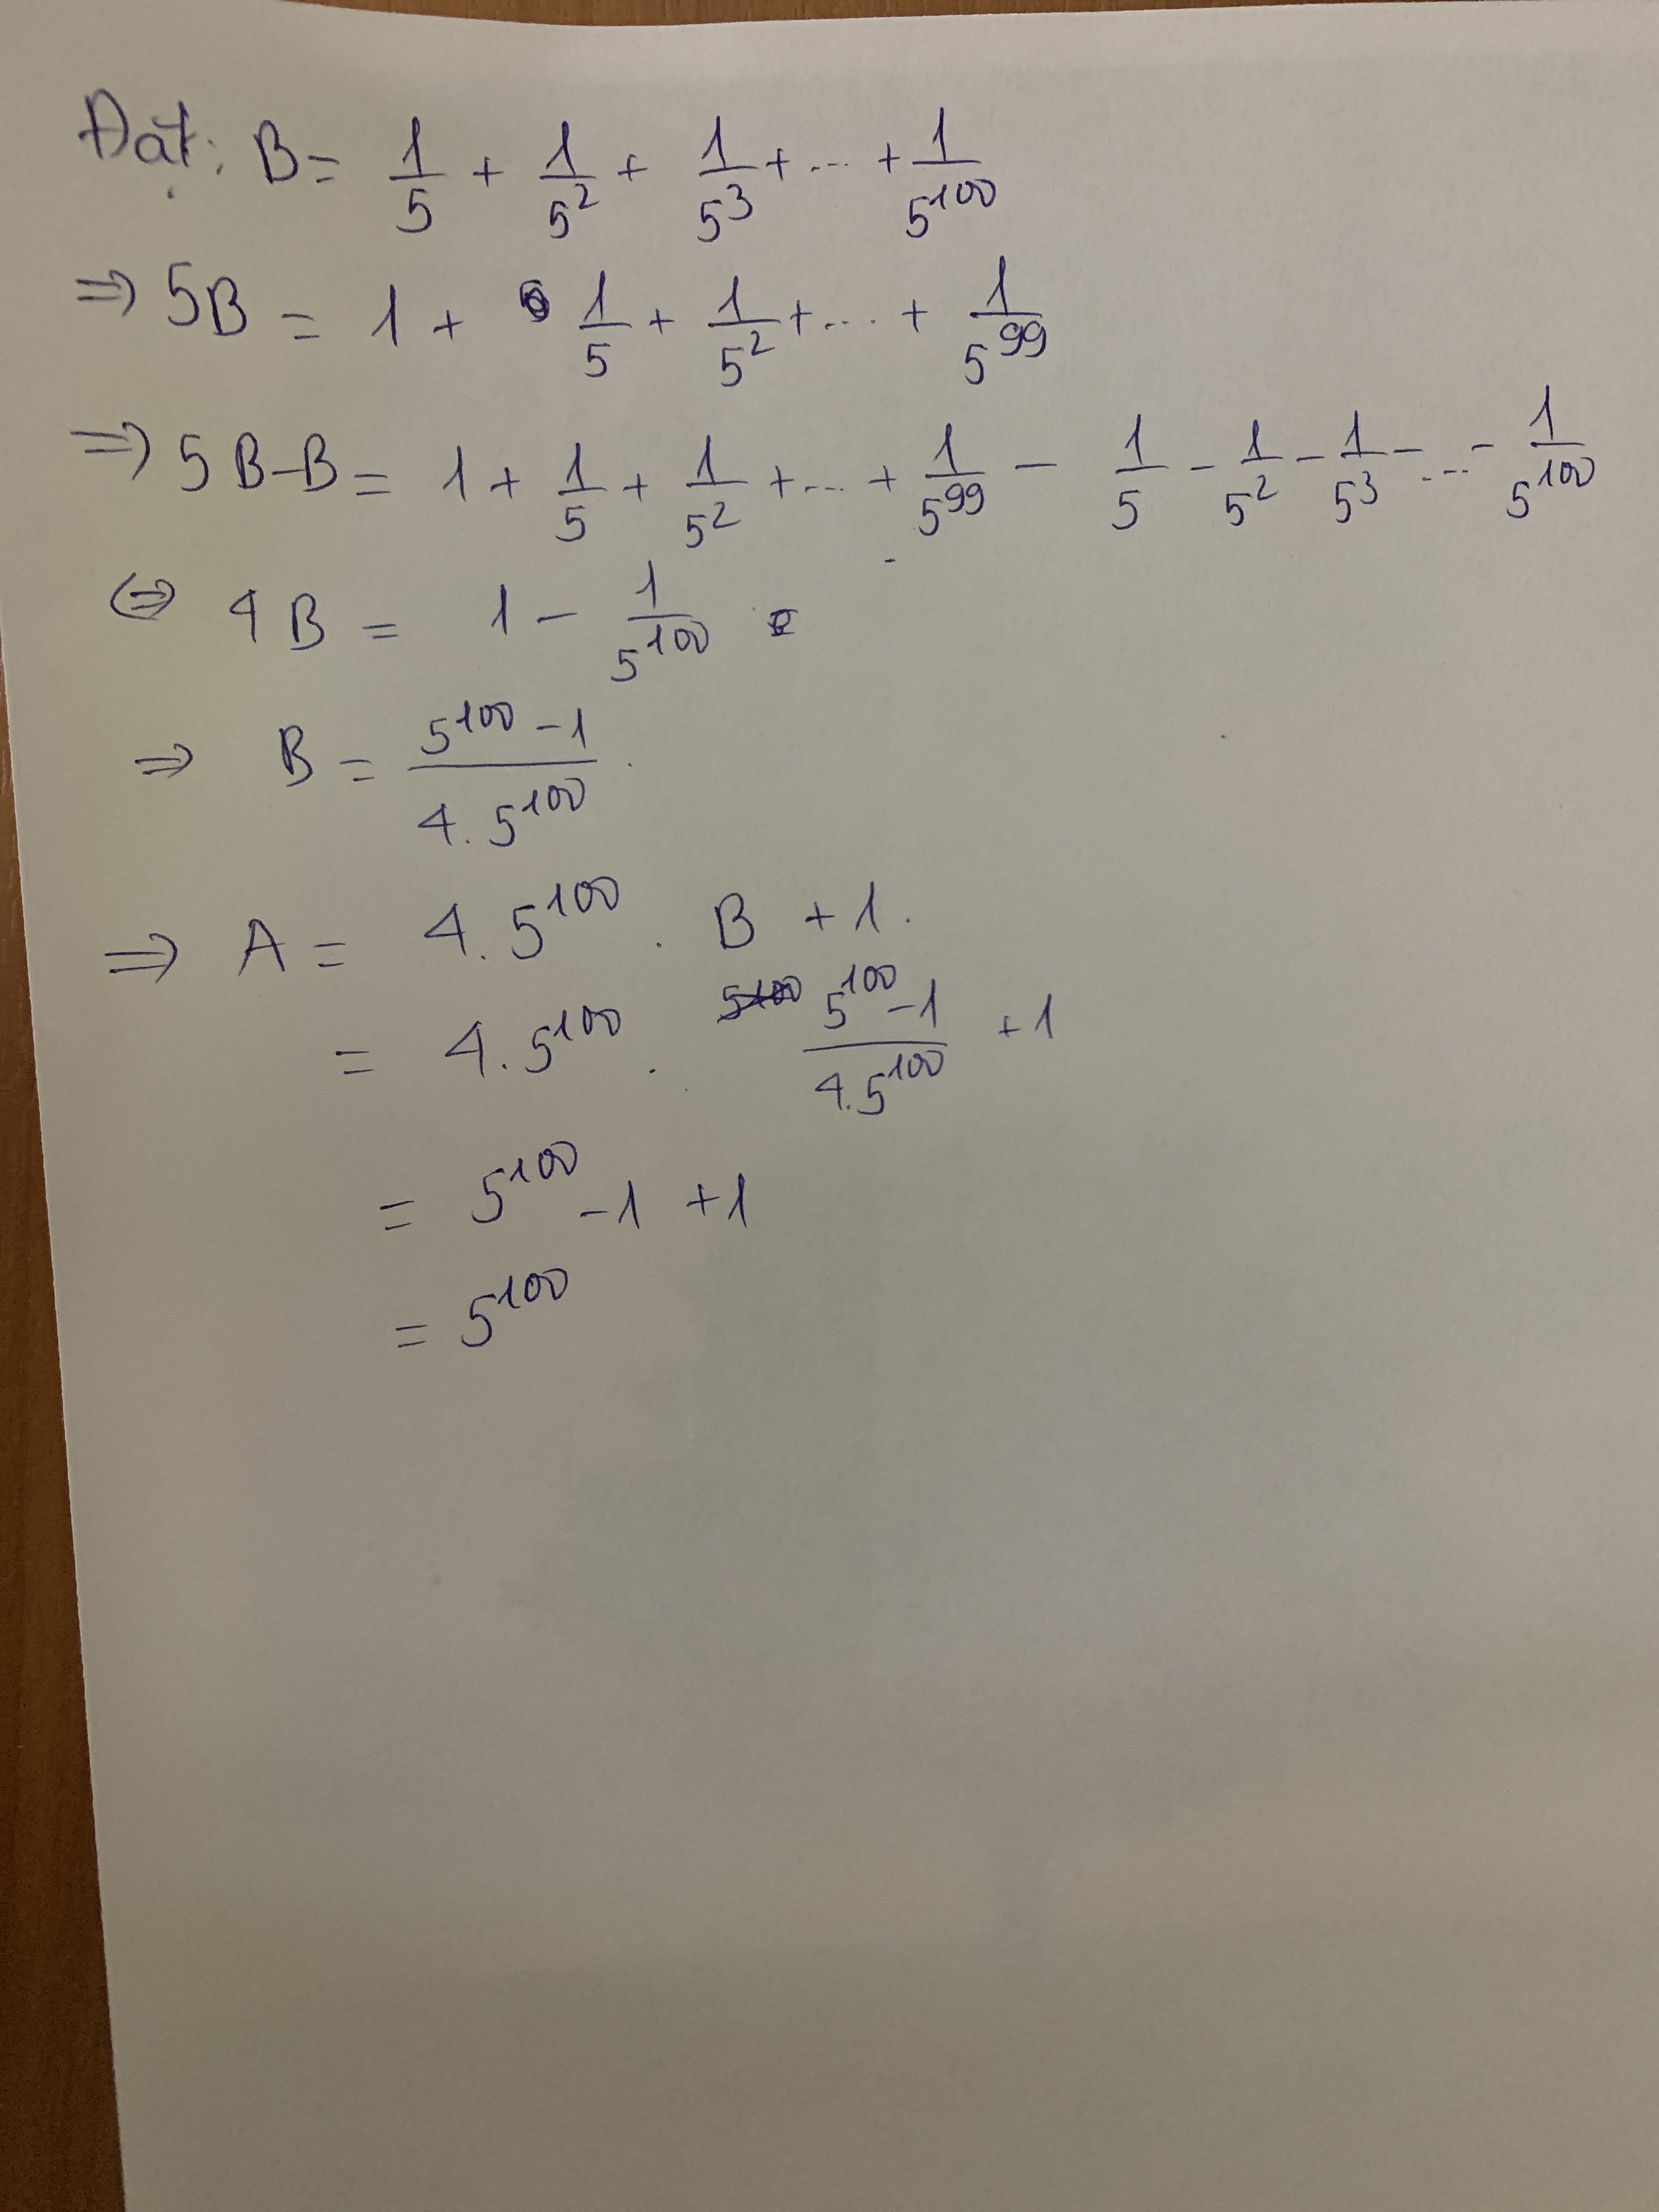 Đặt: B = 1/5 + 1/5² + 1/5³ + ... + 1/5¹⁰⁰
⇒ 5B = 1 + 1/5 + 1/5² + ... + 1/5⁹⁹
⇒ 5B - B = 1 + 1/5 + 1/5² + ... + 1/5⁹⁹ - 1/5 - 1/5² - 1/5³ - ... - 1/5¹⁰⁰
⇔ 4B = 1 - 1/5¹⁰⁰
⇒ B = (5¹⁰⁰ - 1)/(4.5¹⁰⁰)
⇒ A = 4.5¹⁰⁰ . B + 1.
= 4.5¹⁰⁰ . (5¹⁰⁰ - 1)/(4.5¹⁰⁰) + 1
= 5¹⁰⁰ - 1 + 1
= 5¹⁰⁰